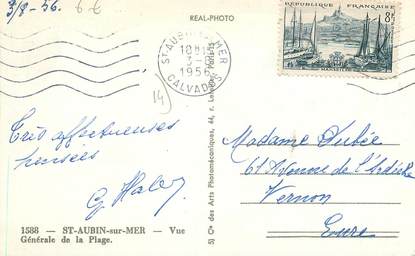 3/8-56. 6€
REAL-PHOTO
REPUBLIQUE FRANÇAISE
8F
MARSEILLE
ST-AUBIN-S-MER
18H15
3-8
1956
CALVADOS
14
Très affectueuses
pensées
1588 — ST-AUBIN-sur-MER — Vue
Générale de la Plage.
5) Cie des Arts Photomécaniques, 44, r.
Madame Aubée
61 Avenue de l'Ardèche
Vernon
Eure